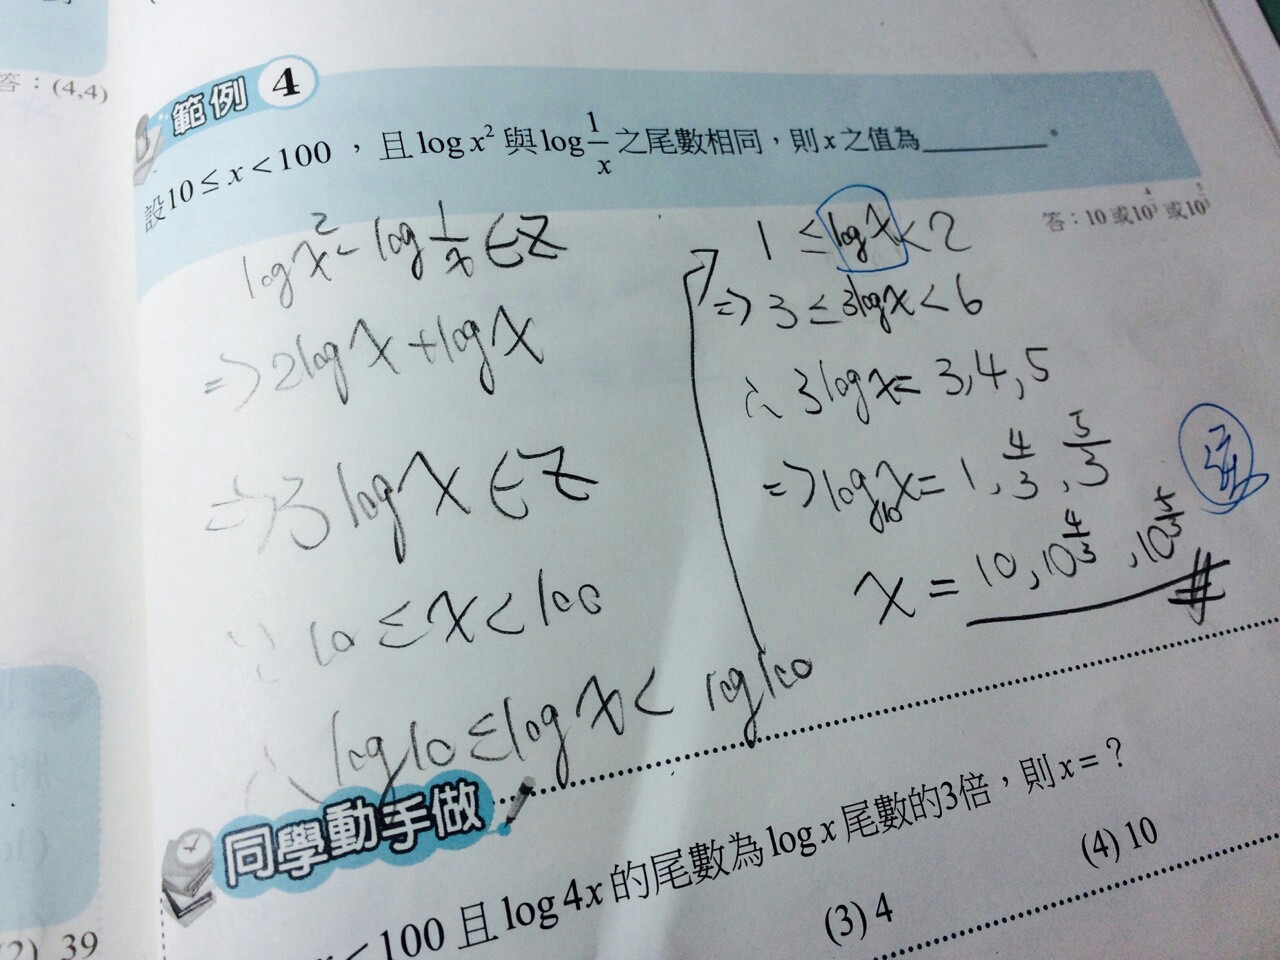 答：(4,4)
範例 4
設10 ≤ x < 100 ，且 log x² 與 log 1/x 之尾數相同，則 x 之值為________。
答：10 或10^(4/3) 或10^(5/3)
log x² - log 1/x ∈ Z
⇒ 2log x + log x
⇒ 3 log x ∈ Z
∵ 10 ≤ x < 100
∴ log 10 ≤ log x < log 100
1 ≤ log x < 2
⇒ 3 ≤ 3log x < 6
∴ 3log x = 3,4,5
⇒ log₁₀x = 1, 4/3, 5/3
x = 10, 10^(4/3), 10^(5/3) #
同學動手做
x < 100 且 log 4x 的尾數為 log x 尾數的3倍，則 x = ?
(3) 4
(4) 10
(2) 39